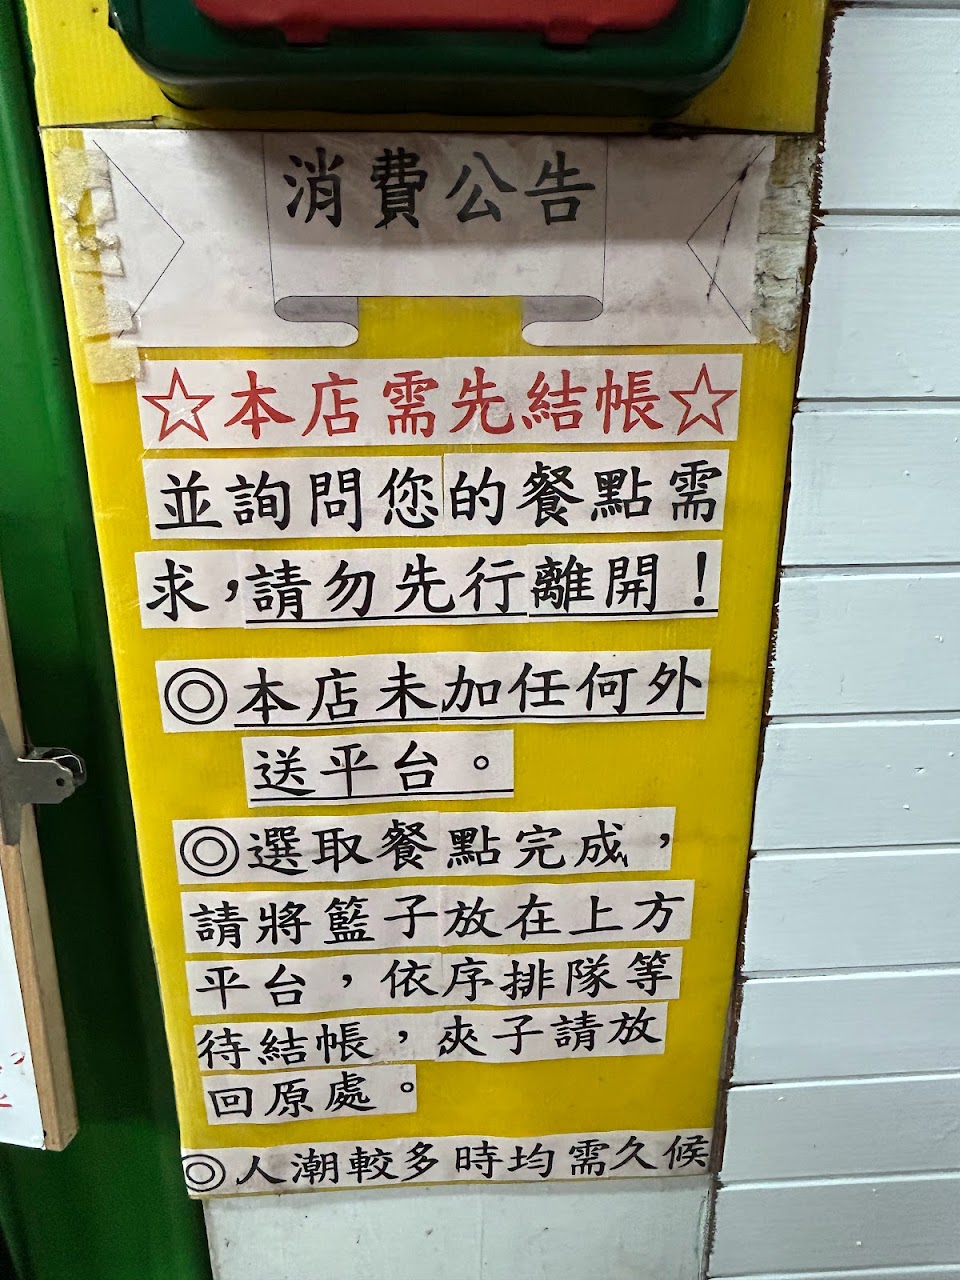 消費公告
☆本店需先結帳☆
並詢問您的餐點需
求，請勿先行離開！
◎本店未加任何外
送平台。
◎選取餐點完成，
請將籃子放在上方
平台，依序排隊等
待結帳，夾子請放
回原處。
◎人潮較多時均需久候